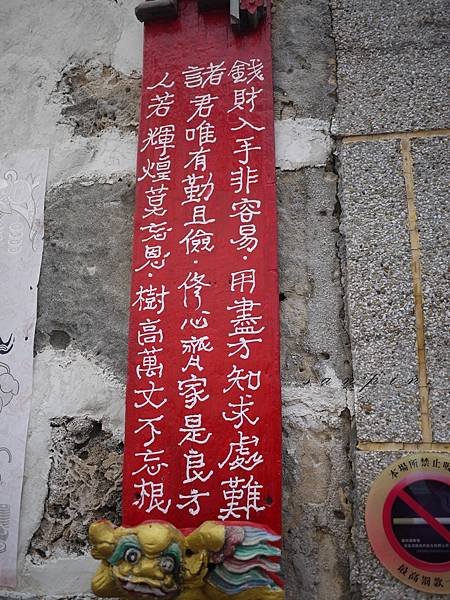 錢財入手非容易．用盡方知求處難
諸君唯有勤且儉．修心齊家是良方
人若輝煌莫忘恩．樹高萬丈不忘根
本場所禁止吸